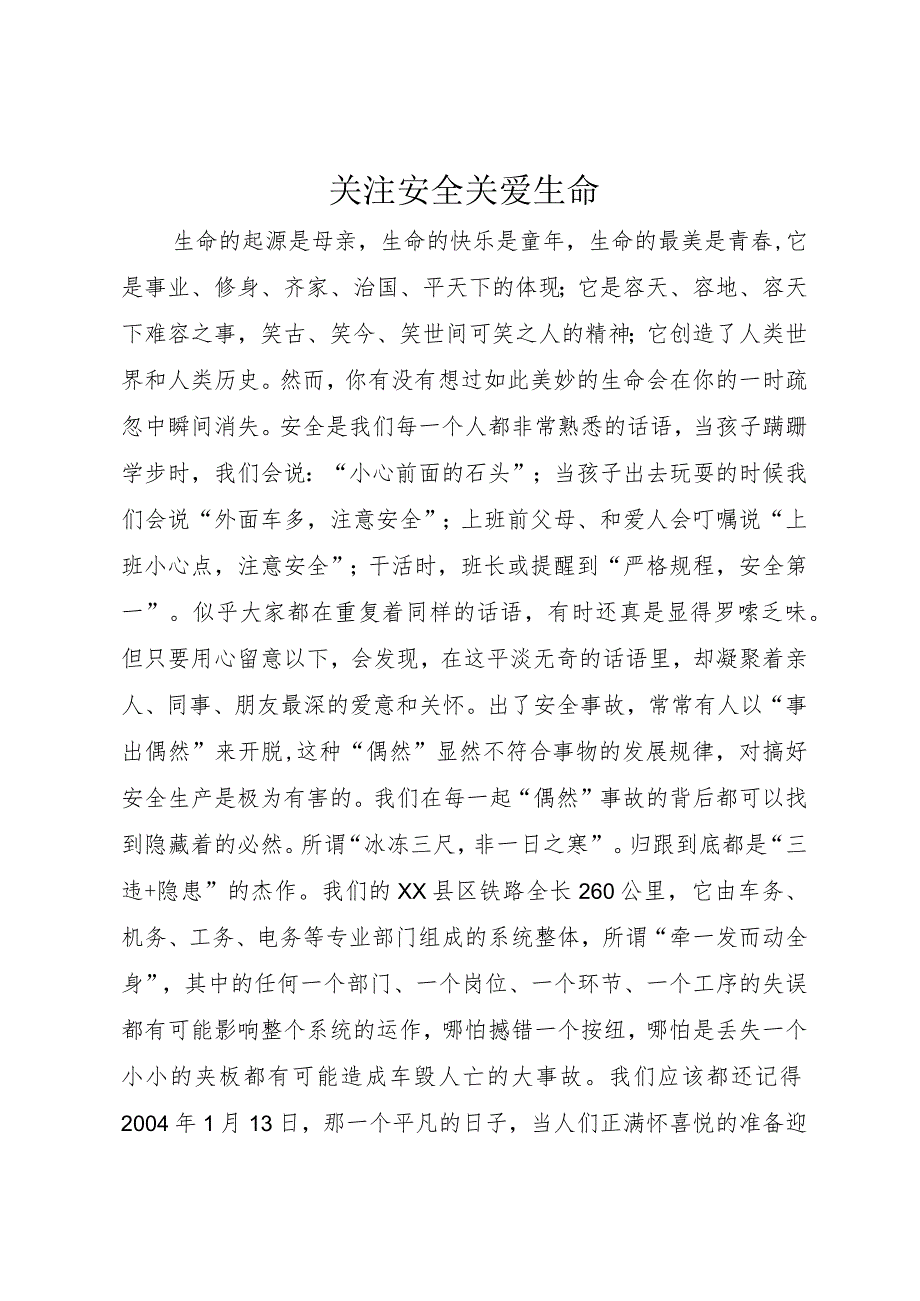 关注安全关爱生命
生命的起源是母亲，生命的快乐是童年，生命的最美是青春,它
是事业、修身、齐家、治国、平天下的体现；它是容天、容地、容天
下难容之事，笑古、笑今、笑世间可笑之人的精神；它创造了人类世
界和人类历史。然而，你有没有想过如此美妙的生命会在你的一时疏
忽中瞬间消失。安全是我们每一个人都非常熟悉的话语，当孩子蹒跚
学步时，我们会说：“小心前面的石头”；当孩子出去玩耍的时候我
们会说“外面车多，注意安全”；上班前父母、和爱人会叮嘱说“上
班小心点，注意安全”；干活时，班长或提醒到“严格规程，安全第
一”。似乎大家都在重复着同样的话语，有时还真是显得罗嗦乏味。
但只要用心留意以下，会发现，在这平淡无奇的话语里，却凝聚着亲
人、同事、朋友最深的爱意和关怀。出了安全事故，常常有人以“事
出偶然”来开脱,这种“偶然”显然不符合事物的发展规律，对搞好
安全生产是极为有害的。我们在每一起“偶然”事故的背后都可以找
到隐藏着的必然。所谓“冰冻三尺，非一日之寒”。归跟到底都是“三
违+隐患”的杰作。我们的XX县区铁路全长260公里，它由车务、
机务、工务、电务等专业部门组成的系统整体，所谓“牵一发而动全
身”，其中的任何一个部门、一个岗位、一个环节、一个工序的失误
都有可能影响整个系统的运作，哪怕撼错一个按纽，哪怕是丢失一个
小小的夹板都有可能造成车毁人亡的大事故。我们应该都还记得
2004年1月13日，那一个平凡的日子，当人们正满怀喜悦的准备迎